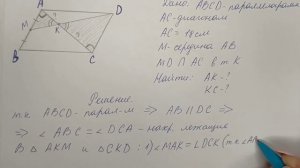 A
D
M
K
B
C
Дано: ABCD-параллелограмм
AC-диагональ
AC = 18см
M-середина AB
MD ∩ AC в т K
Найти: AK-?
KC-?
Решение
т.к. ABCD-парал-м ⇒ AB || DC ⇒
⇒ ∠ABC = ∠DCA - накр. лежащие
В △ AKM и △CKD: 1) ∠MAK = ∠DCK (т.к ∠